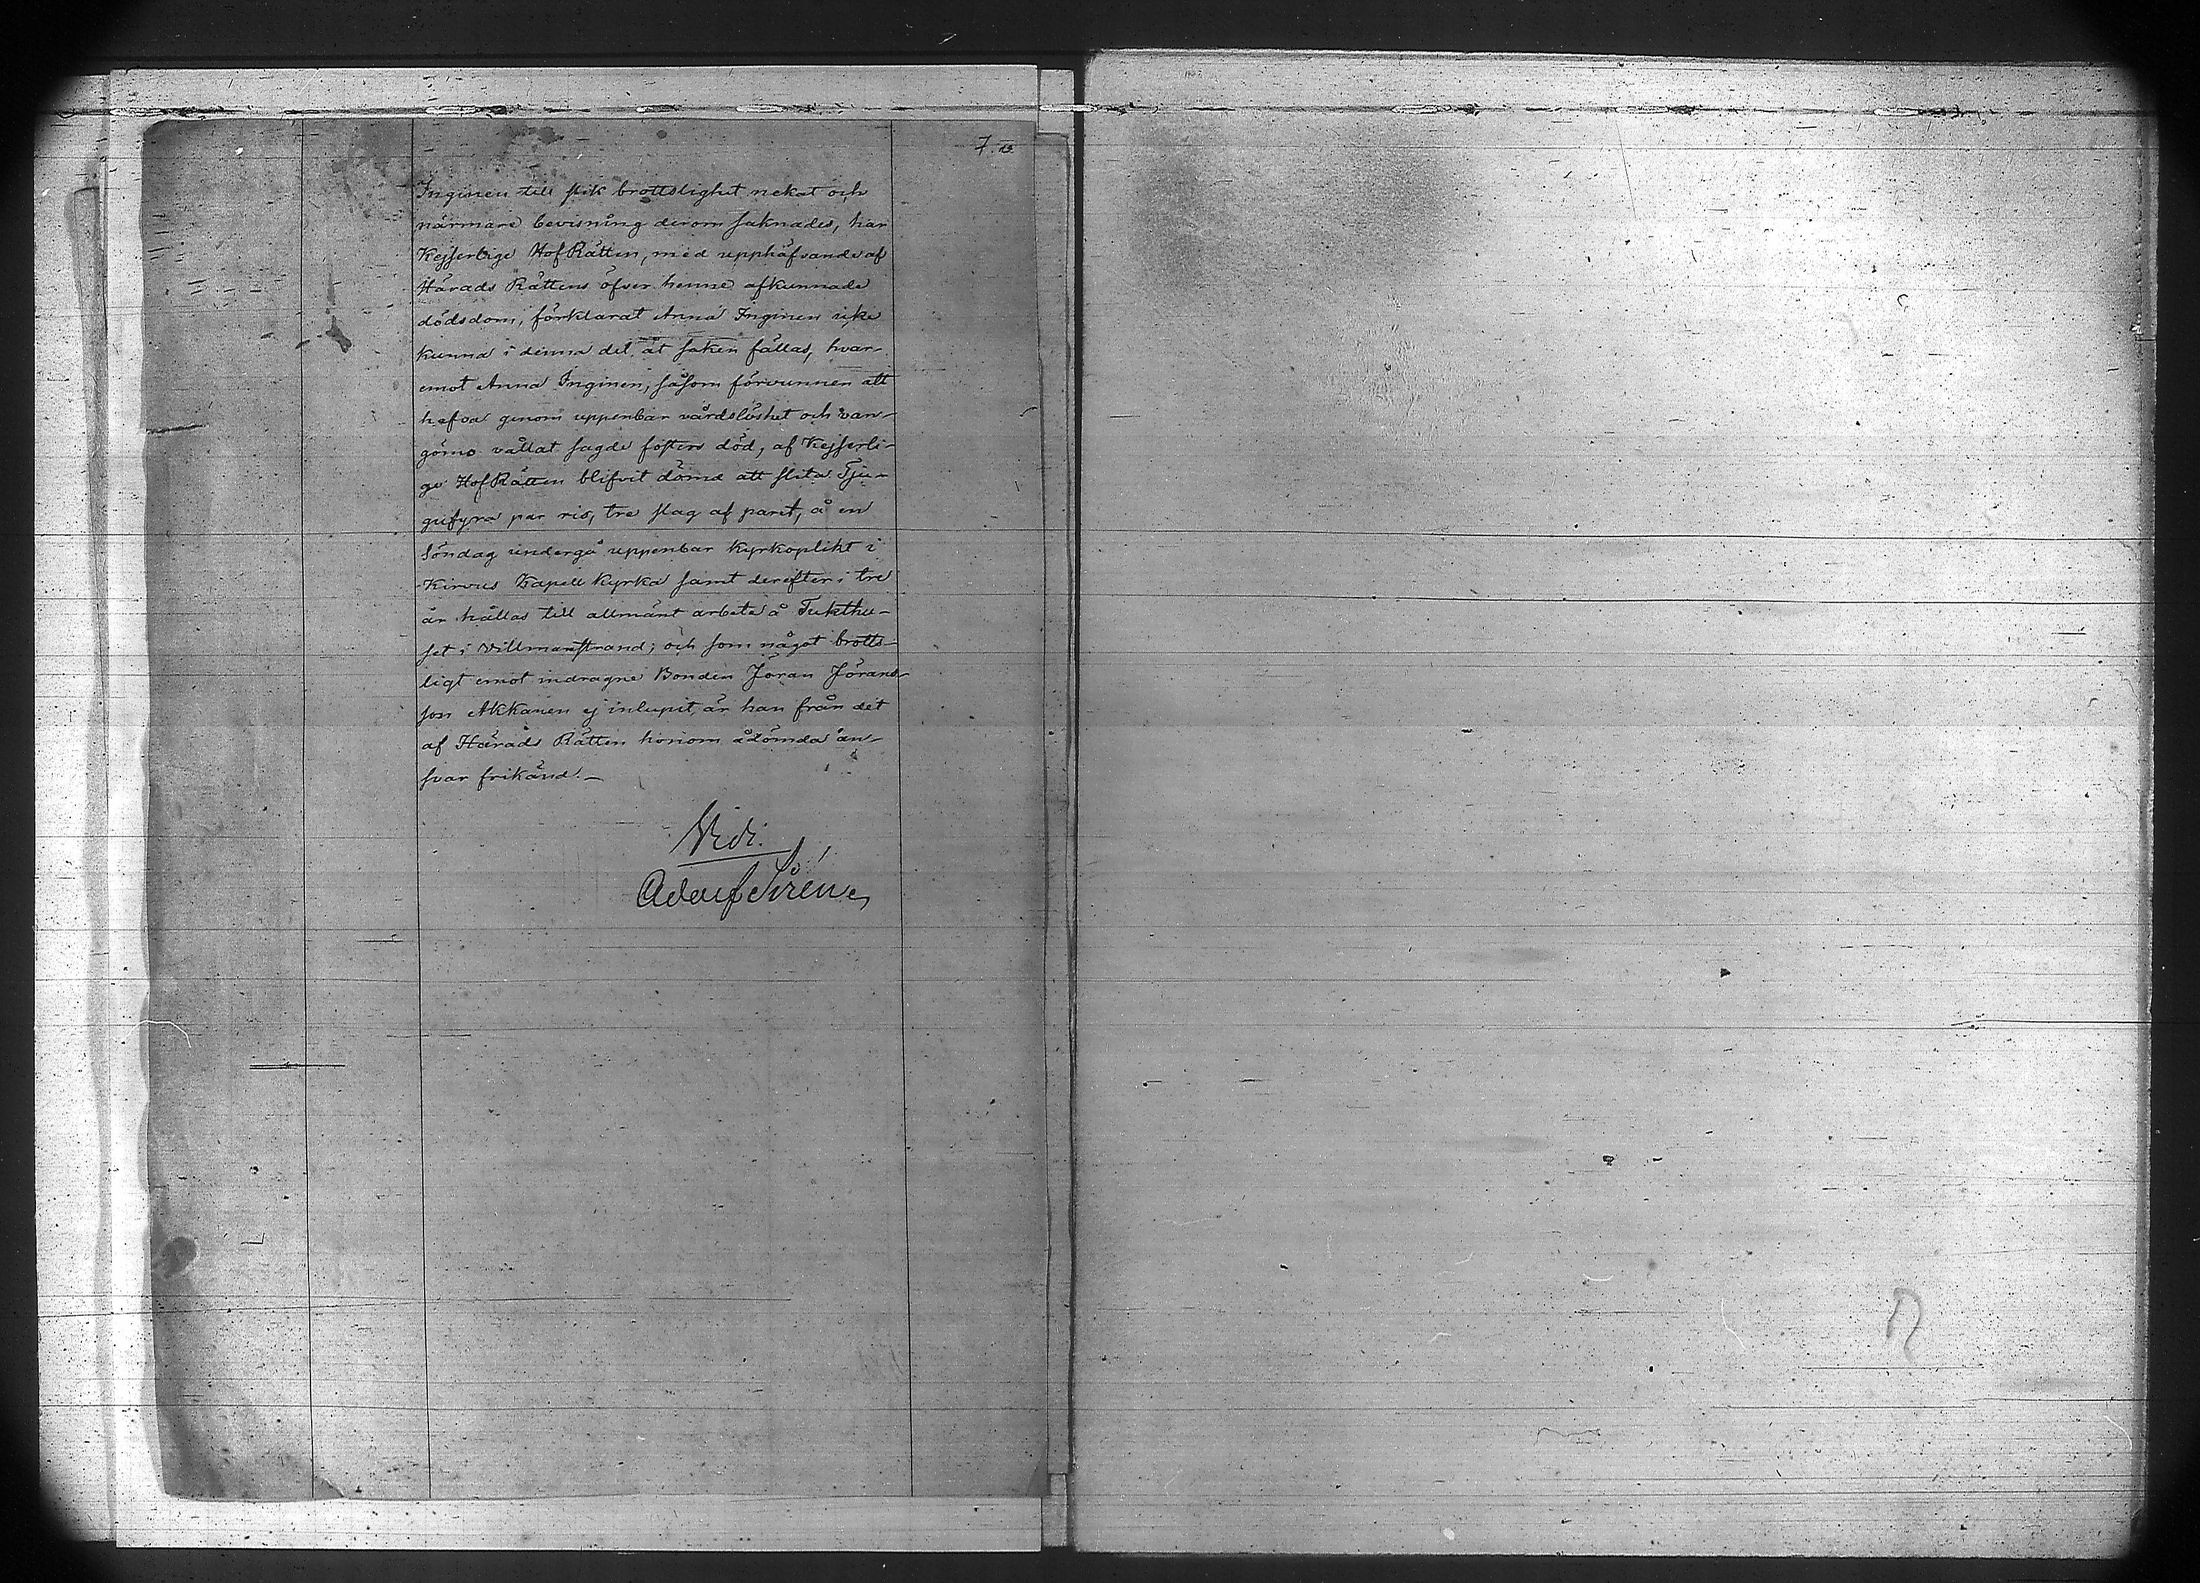 7.
Inginen till slik brottslighet nekat och
närmare bevisning derom saknades, har
Kejserlige HofRätten, med upphäfvande af
Härads Rättens öfver henne afkunnade
dödsdom, förklarat Anna Inginen icke
kunna i denna del åt saken fällas, hvar-
emot Anna Inginen, såsom förvunnen att
hafva genom uppenbar vårdslöshet och van-
gömo vållat sagde fosters död, af Kejserli-
ge HofRätten blifvit dömd att slita Tju-
gufyra par ris, tre slag af paret, å en
Söndag undergå uppenbar Kyrkoplikt i
Kirvus Kapell Kyrka samt derefter i tre
år hållas till allmänt arbete å Tukthu-
set i Villmanstrand; och som något brotts-
ligt emot indragne Bonden Jöran Jörans-
son Akkanen ej inlupit, är han från det
af Härads Rätten honom ådömda an-
svar frikänd.—
Vidi.
Adolf Sirén